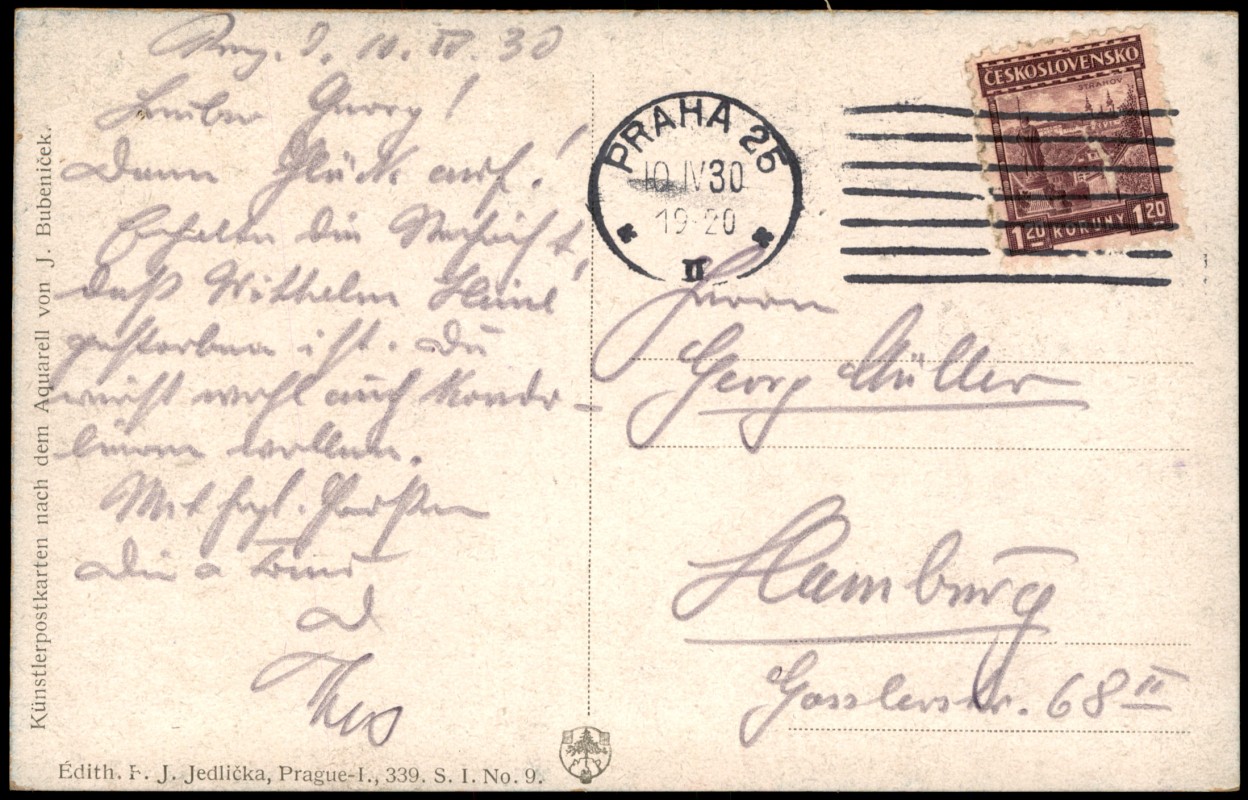 Prag. d. 10. IV. 30
Lieber Georg!
Dann Glück auf!
Erhalten die Nachricht,
daß Wilhelm Heine
gestorben ist. Du
wirst wohl auch kondo-
lieren wollen.
Mit frdl. Grüßen
Die
Künstlerpostkarten nach dem Aquarell von J. Bubeníček.
Édith. F. J. Jedlička, Prague-I., 339. S. I. No. 9.
PRAHA 25
10 IV 30
19-20
II
ČESKOSLOVENSKO
STRAHOV
1 20 KORUNY 1 20
Herrn
Georg Müller
Hamburg
Gosslerstr. 68 II